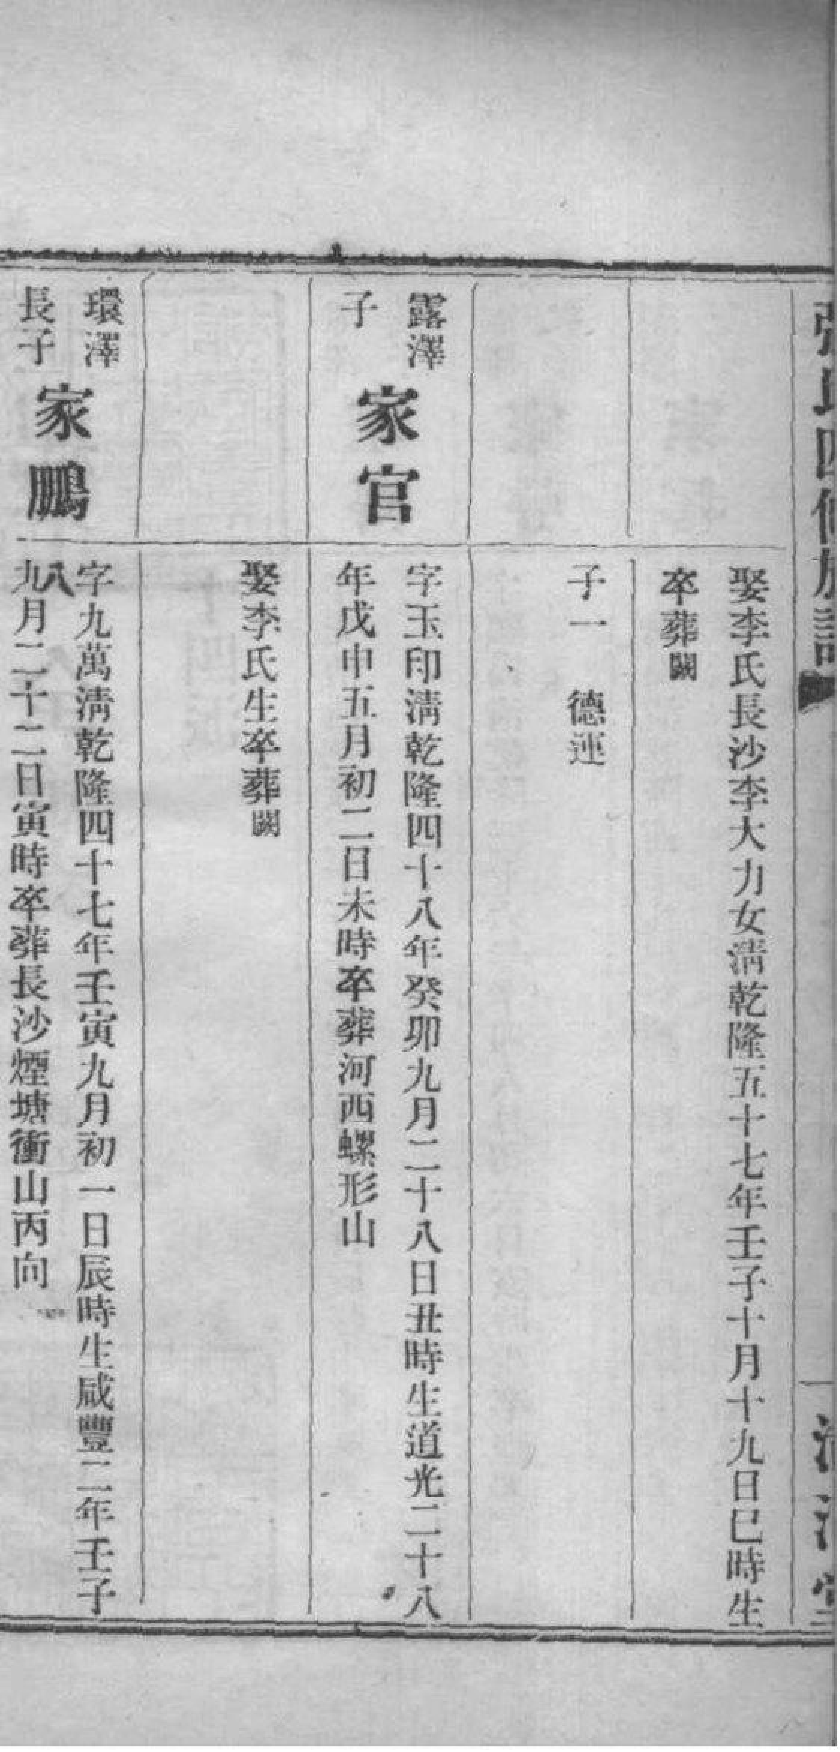 張氏四修族譜
清河堂
娶李氏長沙李大力女淸乾隆五十七年壬子十月十九日巳時生
卒葬闕
子一 德運
露澤
子
家官
字玉印淸乾隆四十八年癸卯九月二十八日丑時生道光二十八
年戊申五月初二日未時卒葬河西螺形山
娶李氏生卒葬闕
環澤
長子
家鵬
字九萬淸乾隆四十七年壬寅九月初一日辰時生咸豐二年壬子
八
九月二十二日寅時卒葬長沙煙塘衝山丙向